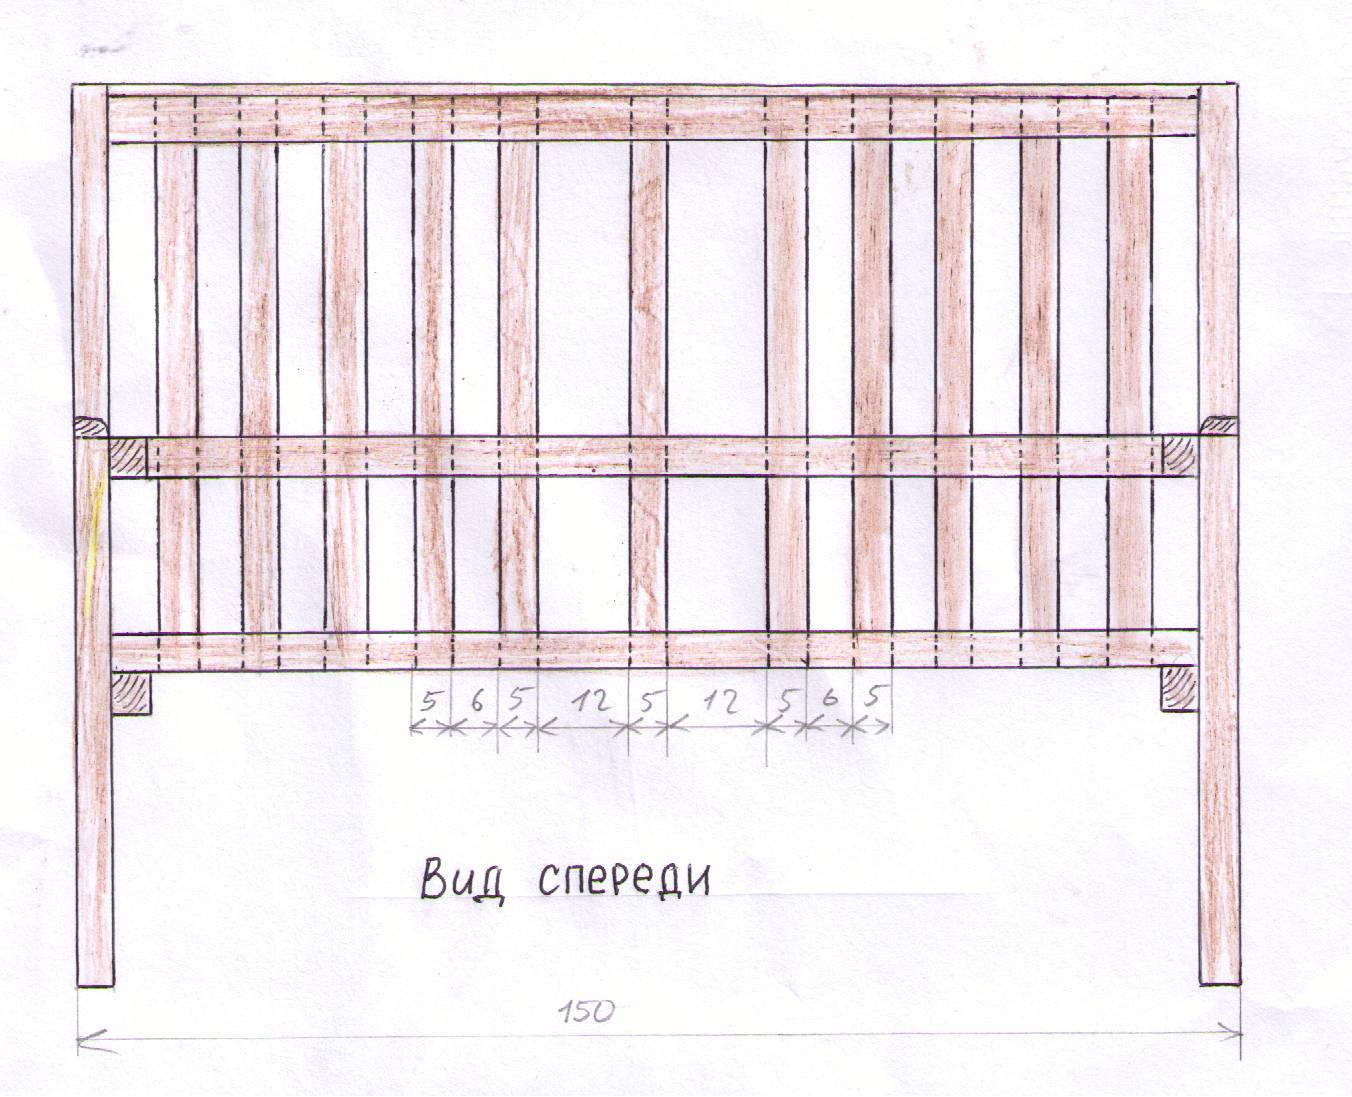 5 6 5 12 5 12 5 6 5
Вид спереди
150